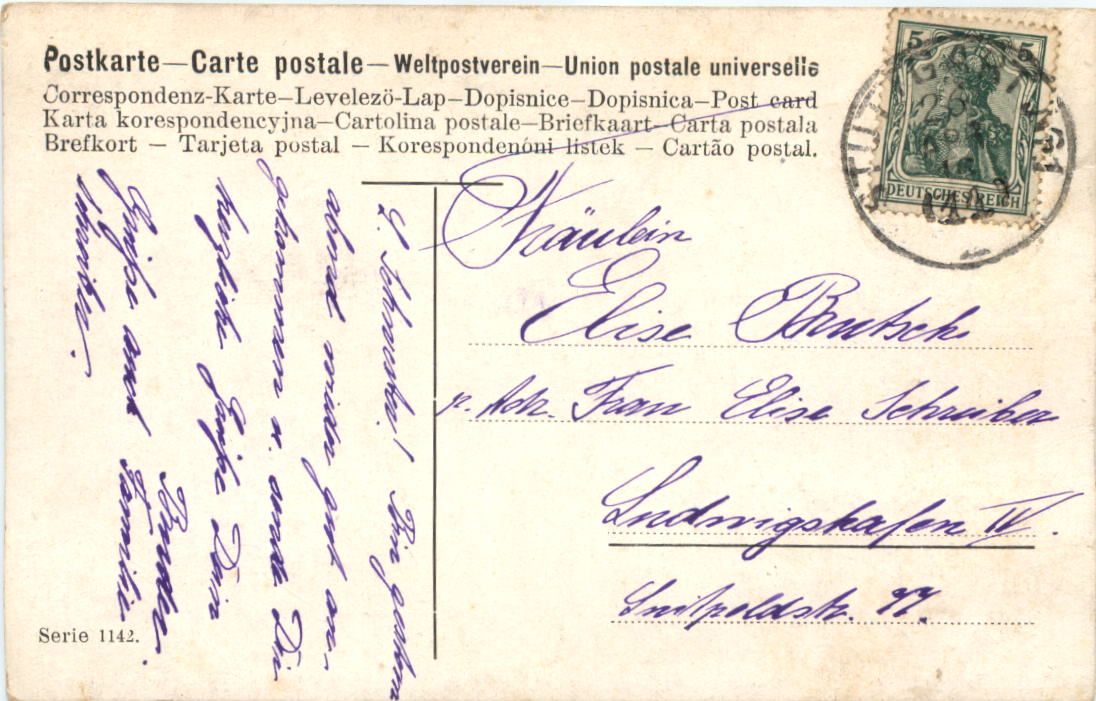 Postkarte—Carte postale—Weltpostverein—Union postale universelle
Correspondenz-Karte—Levelezö-Lap—Dopisnice—Dopisnica—Post card
Karta korespondencyjna—Cartolina postale—Briefkaart—Carta postala
Brefkort — Tarjeta postal — Korespondenóni listek — Cartão postal.
5 5
DEUTSCHES REICH
STUTTGART
Fräulein
Elise
p. Adr. Frau Elise Schreiber
Ludwigshafen IV.
Luitpoldstr. 77.
L. Schwester! Bin gestern
abend wieder gut an-
gekommen u. sende Dir
herzliche Grüße Dein
Bruder.
Grüße auch Familie
Schreiber.
Serie 1142.